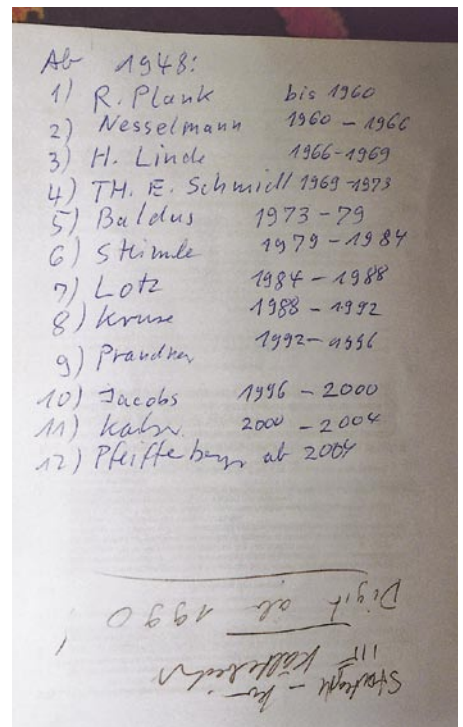 Ab 1948:
1) R. Plank bis 1960
2) Nesselmann 1960 – 1966
3) H. Linde 1966-1969
4) TH. E. Schmidt 1969-1973
5) Baldus 1973 – 79
6) Stimle 1979 – 1984
7) Lotz 1984 – 1988
8) Kruse 1988 – 1992
9) 1992 – 1996
10) Jacobs 1996 – 2000
11) 2000 – 2004
12) Pfeiffenberger ab 2004
Digit ab 1990